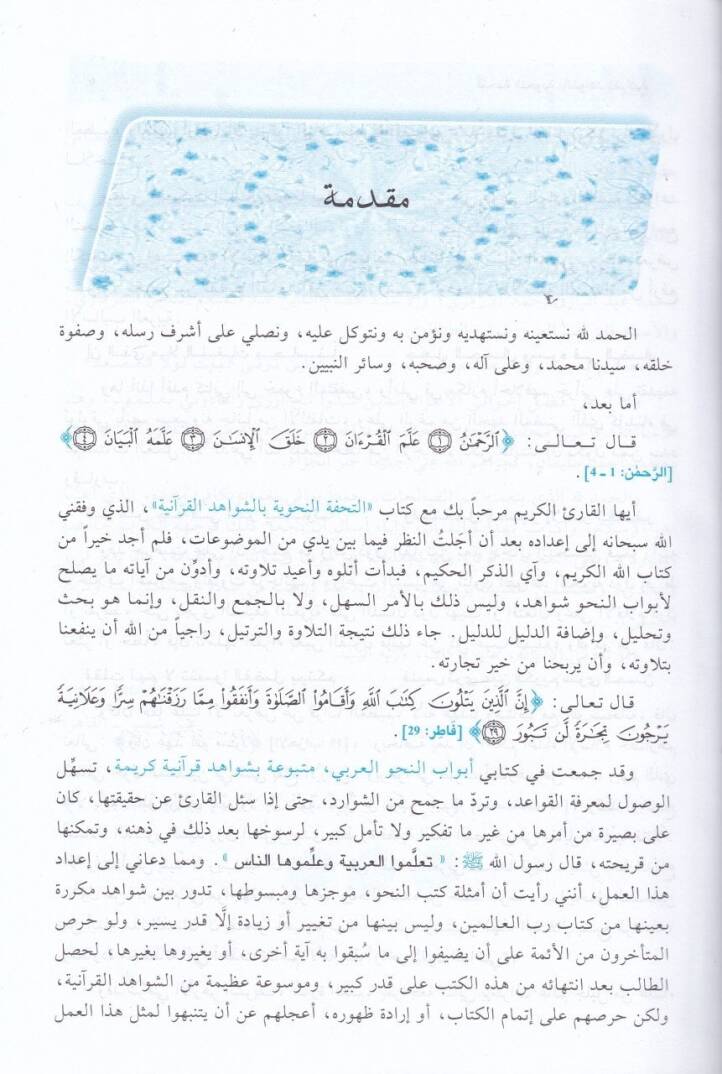 مقدمة
الحمد لله نستعينه ونستهديه ونؤمن به ونتوكل عليه، ونصلي على أشرف رسله، وصفوة
خلقه، سيدنا محمد، وعلى آله، وصحبه، وسائر النبيين.
أما بعد،
قال تعالى: ﴿الرَّحْمَٰنُ ١ عَلَّمَ الْقُرْءَانَ ٢ خَلَقَ الْإِنسَٰنَ ٣ عَلَّمَهُ الْبَيَانَ ٤﴾
[الرَّحمٰن: 1 ـ 4].
أيها القارئ الكريم مرحباً بك مع كتاب «التحفة النحوية بالشواهد القرآنية»، الذي وفقني
الله سبحانه إلى إعداده بعد أن أجَلتُ النظر فيما بين يدي من الموضوعات، فلم أجد خيراً من
كتاب الله الكريم، وآي الذكر الحكيم، فبدأت أتلوه وأعيد تلاوته، وأدوِّن من آياته ما يصلح
لأبواب النحو شواهد، وليس ذلك بالأمر السهل، ولا بالجمع والنقل، وإنما هو بحث
وتحليل، وإضافة الدليل للدليل. جاء ذلك نتيجة التلاوة والترتيل، راجياً من الله أن ينفعنا
بتلاوته، وأن يربحنا من خير تجارته.
قال تعالى: ﴿إِنَّ الَّذِينَ يَتْلُونَ كِتَٰبَ اللَّهِ وَأَقَامُوا الصَّلَوٰةَ وَأَنفَقُوا مِمَّا رَزَقْنَٰهُمْ سِرًّا وَعَلَانِيَةً
يَرْجُونَ تِجَٰرَةً لَّن تَبُورَ ٢٩﴾ [فَاطِر: 29].
وقد جمعت في كتابي أبواب النحو العربي، متبوعة بشواهد قرآنية كريمة، تسهِّل
الوصول لمعرفة القواعد، وتردّ ما جمح من الشوارد، حتى إذا سئل القارئ عن حقيقتها، كان
على بصيرة من أمرها من غير ما تفكير ولا تأمل كبير، لرسوخها بعد ذلك في ذهنه، وتمكنها
من قريحته، قال رسول الله ﷺ: «تعلَّموا العربية وعلِّموها الناس». ومما دعاني إلى إعداد
هذا العمل، أنني رأيت أن أمثلة كتب النحو، موجزها ومبسوطها، تدور بين شواهد مكررة
بعينها من كتاب رب العالمين، وليس بينها من تغيير أو زيادة إلَّا قدر يسير، ولو حرص
المتأخرون من الأئمة على أن يضيفوا إلى ما سُبقوا به آية أخرى، أو يغيروها بغيرها، لحصل
الطالب بعد انتهائه من هذه الكتب على قدر كبير، وموسوعة عظيمة من الشواهد القرآنية،
ولكن حرصهم على إتمام الكتاب، أو إرادة ظهوره، أعجلهم عن أن يتنبهوا لمثل هذا العمل